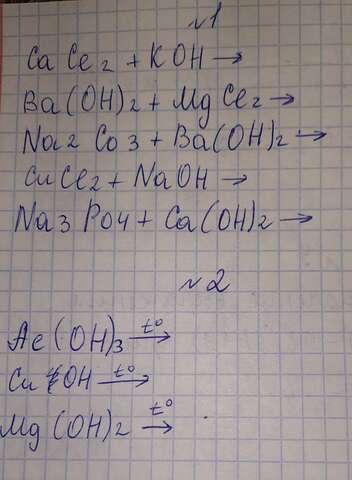 №1
CaCl₂ + KOH →
Ba(OH)₂ + MgCl₂ →
Na₂CO₃ + Ba(OH)₂ →
CuCl₂ + NaOH →
Na₃PO₄ + Ca(OH)₂ →
№2
Al(OH)₃ t° →
Cu OH t° →
Mg(OH)₂ t° →